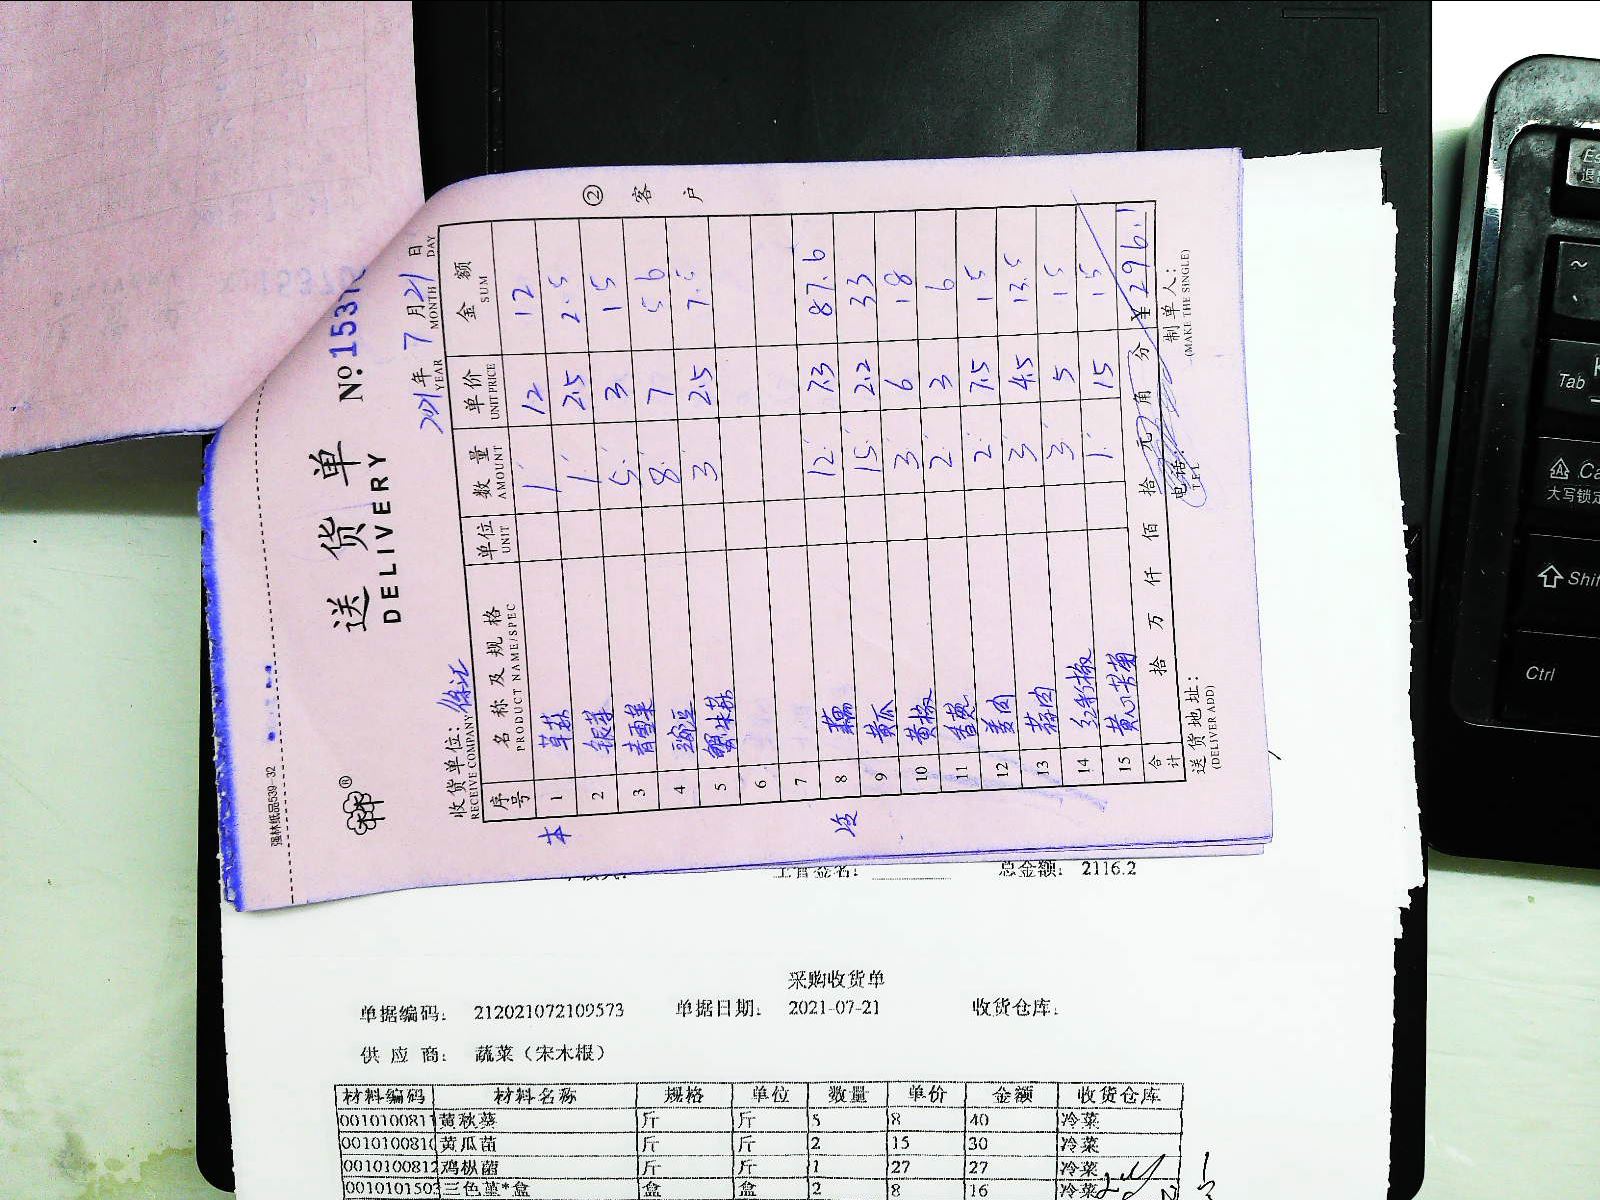 强林纸品539-32
送货单 No.1537
DELIVERY
2021年 7月21日
YEAR MONTH DAY
② 客户
收货单位:
RECEIVE COMPANY
序号 名称及规格 PRODUCT NAME/SPEC 单位 UNIT 数量 AMOUNT 单价 UNIT PRICE 金额 SUM
1 草菇 1 12 12
2 银芽 1 2.5 2.5
3 5 3 15
4 豌豆 8 7 56
5 蟹味菇 3 2.5 7.5
6
7
8 藕 12 7.3 87.6
9 黄瓜 15 2.2 33
10 黄椒 3 6 18
11 香葱 2 3 6
12 姜肉 2 7.5 15
13 蒜肉 3 4.5 13.5
14 红彩椒 3 5 15
15 1 15 15
合计 拾 万 仟 佰 拾 元 角 分 ¥296.1
送货地址: 电话: 制单人:
(DELIVER ADD) TEL (MAKE THE SINGLE)
总金额: 2116.2
采购收货单
单据编码: 212021072109573 单据日期: 2021-07-21 收货仓库:
供应商: 蔬菜(宋木根)
材料编码 材料名称 规格 单位 数量 单价 金额 收货仓库
0010100811 黄秋葵 斤 斤 5 8 40 冷菜
001010081 黄瓜苗 斤 斤 2 15 30 冷菜
0010100812 鸡枞菌 斤 斤 1 27 27 冷菜
001010150 三色堇*盒 盒 盒 2 8 16 冷菜
Tab
大写锁定
Shif
Ctrl